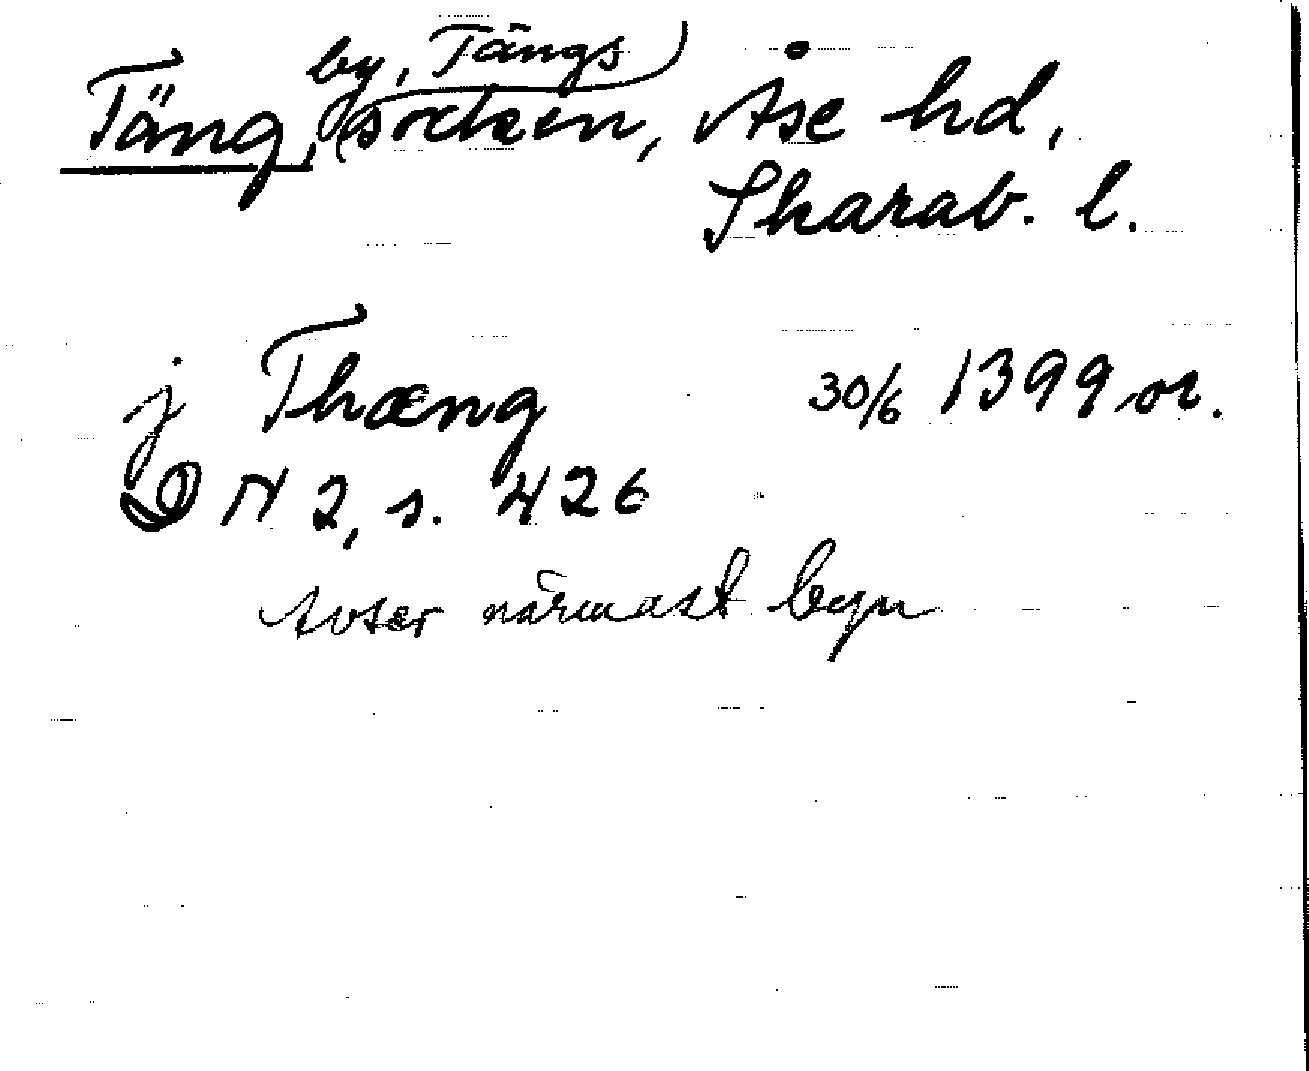 Täng, by, Tängs socken, Åse hd,
Skarab. l.
j Thæng 30/6 1399 or.
N 2, s. 426
Avser närmast byn